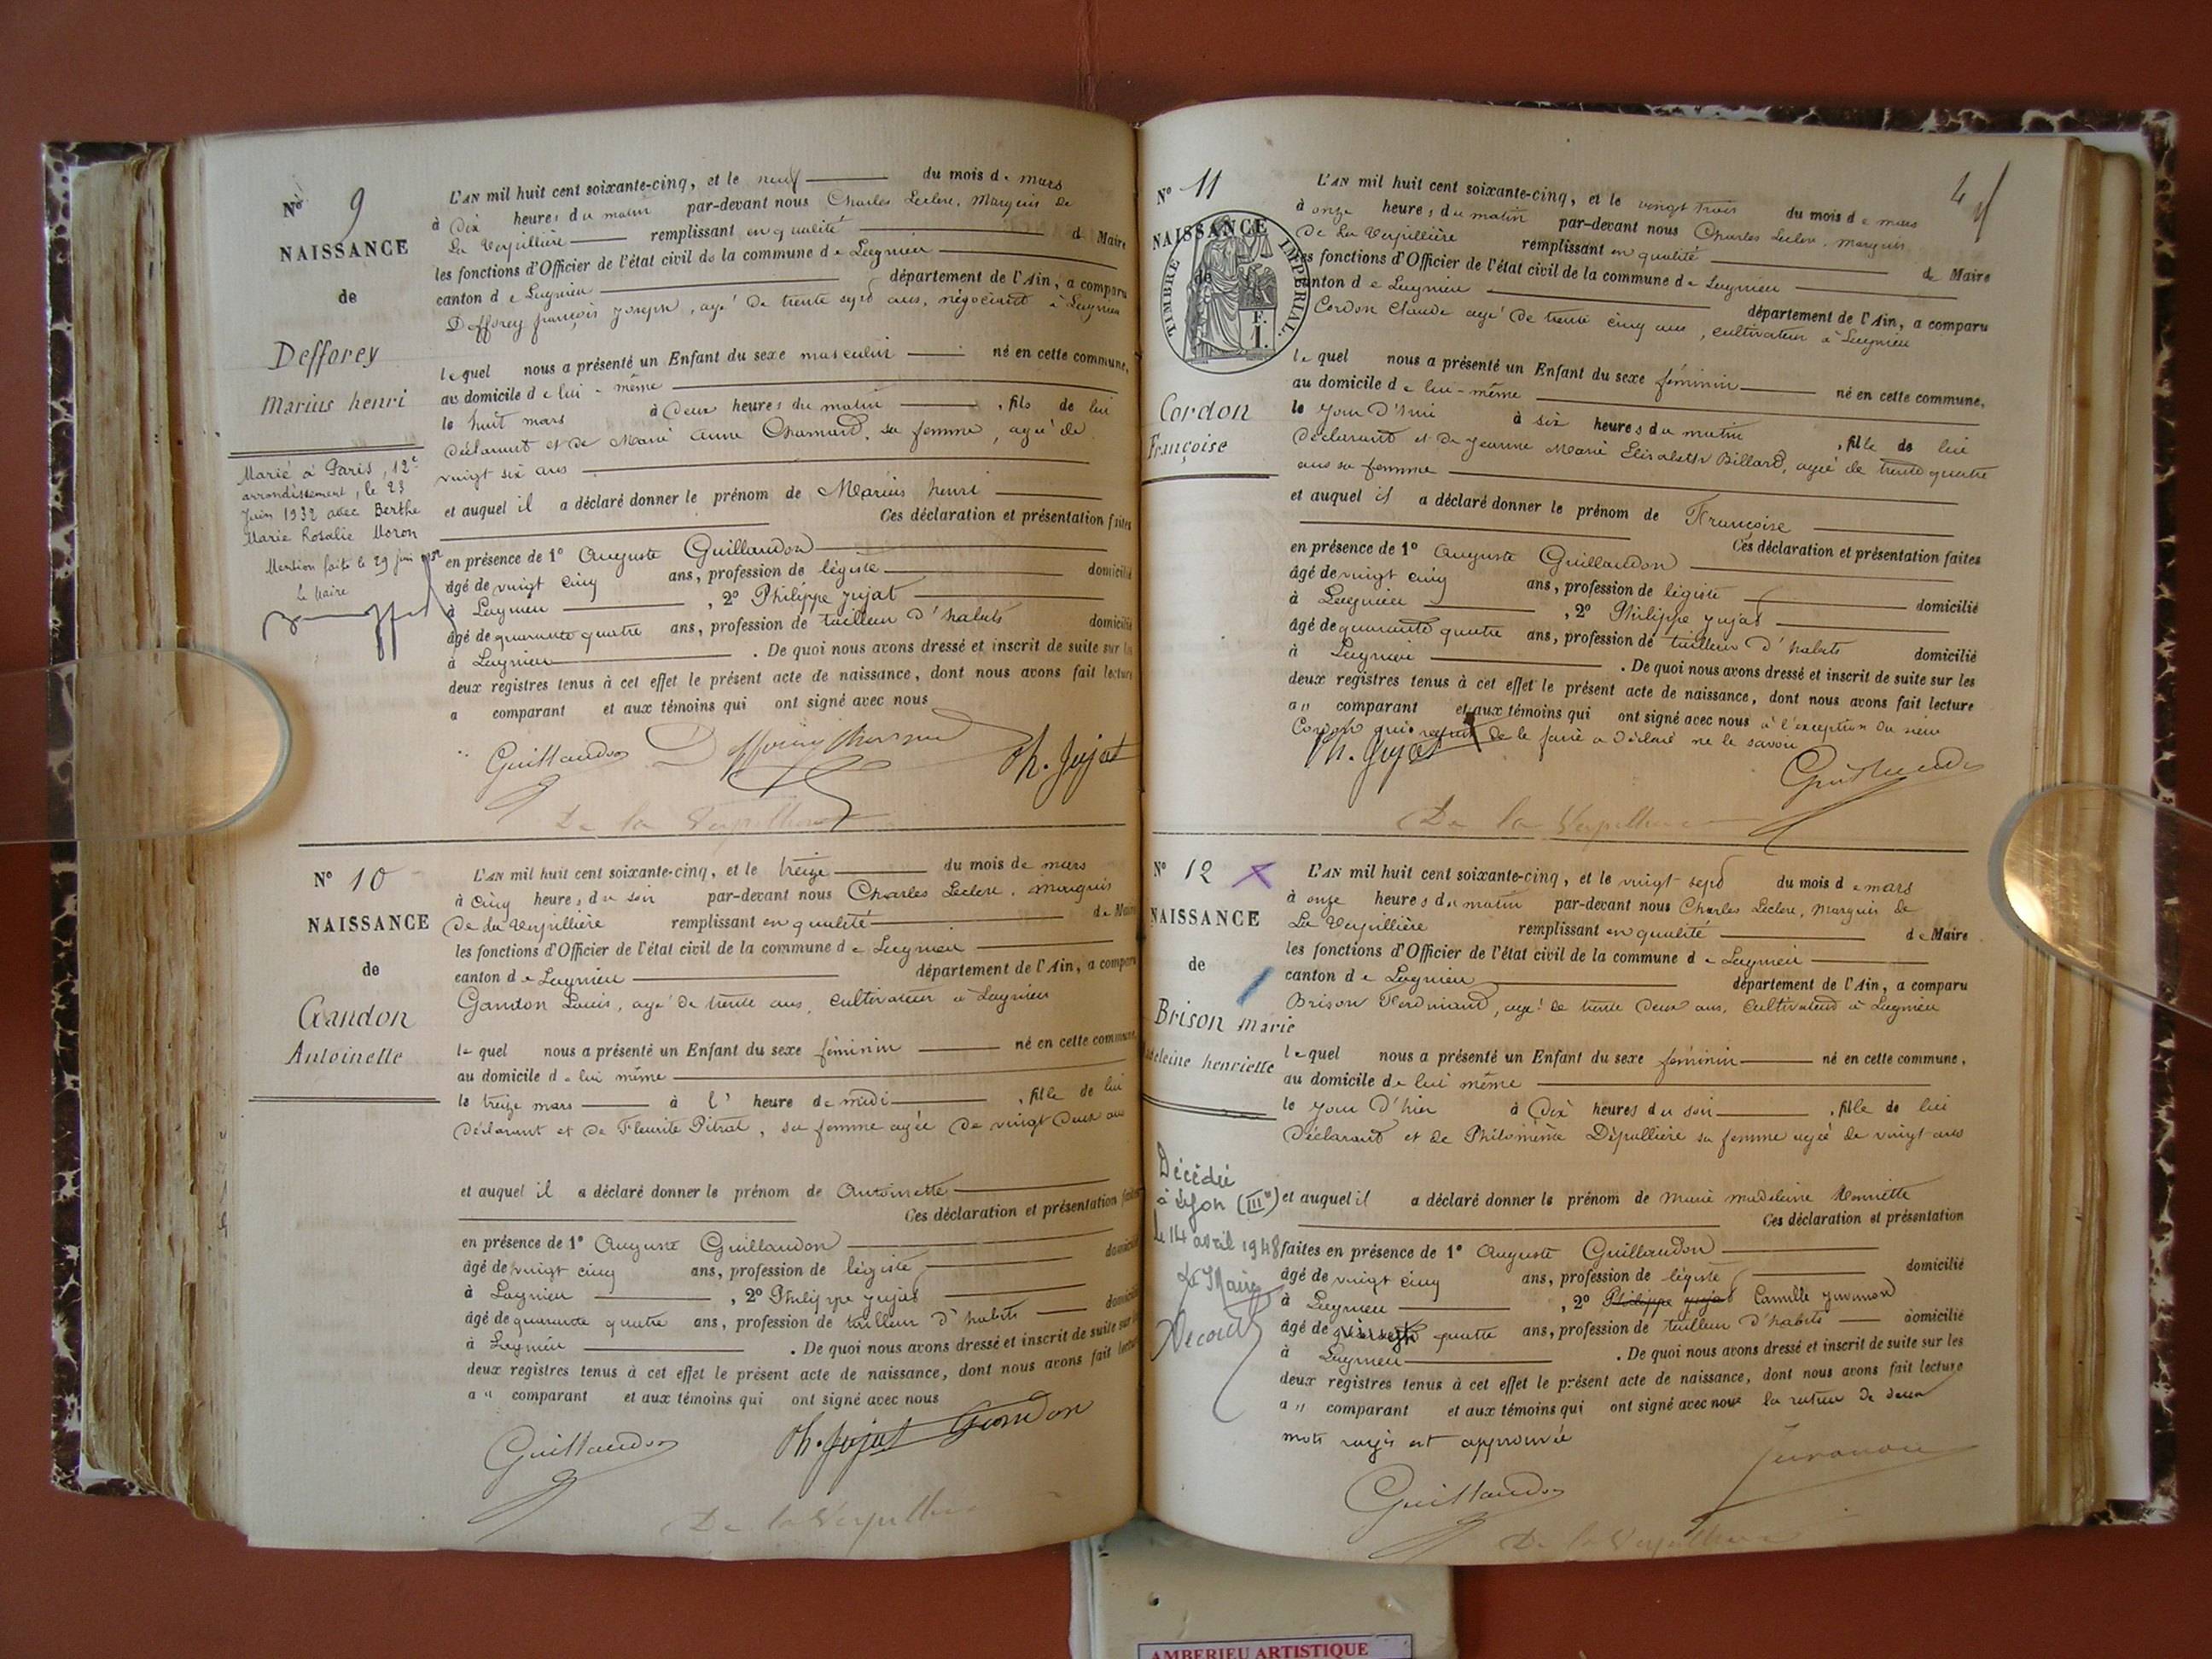 N° 9
NAISSANCE
de
Defforey
Marius henri
Marié à Paris, 12e
arrondissement, le 23
Juin 1932 avec Berthe
Marie Rosalie Moron
Mention faite le 29 juin
Le Maire
L'AN mil huit cent soixante-cinq, et le neuf du mois de mars
à Dix heures du matin par-devant nous Charles Leclerc, Marquis de
La Verpillière remplissant en qualité de Maire
les fonctions d'Officier de l'état civil de la commune de Lagnieu
canton de Lagnieu département de l'Ain, a comparu
Defforey françois joseph, agé de trente sept ans, négociant à Lagnieu
lequel nous a présenté un Enfant du sexe masculin né en cette commune,
au domicile de lui-même
le huit mars à Deux heures du matin, fils de lui
déclarant et de Marie Anne Chamard, sa femme, agée de
vingt six ans
et auquel il a déclaré donner le prénom de Marius henri
Ces déclaration et présentation faites
en présence de 1° Auguste Guillaudon
âgé de vingt cinq ans, profession de légiste domicilié
à Lagnieu, 2° Philippe Jujat
âgé de quarante quatre ans, profession de tailleur d'habits domicilié
à Lagnieu. De quoi nous avons dressé et inscrit de suite sur les
deux registres tenus à cet effet le présent acte de naissance, dont nous avons fait lecture
a comparant et aux témoins qui ont signé avec nous
Guillaudon Defforey Ph. Jujat
De la Verpillière
N° 10
NAISSANCE
de
Gandon
Antoinette
L'AN mil huit cent soixante-cinq, et le treize du mois de mars
à cinq heures du soir par-devant nous Charles Leclerc, marquis
De La Verpillière remplissant en qualité de Maire
les fonctions d'Officier de l'état civil de la commune de Lagnieu
canton de Lagnieu département de l'Ain, a comparu
Gandon Louis, agé de trente ans, cultivateur à Lagnieu
lequel nous a présenté un Enfant du sexe féminin né en cette commune,
au domicile de lui même
le treize mars à l'heure de midi, fille de lui
déclarant et de Fleurite Pitrat, sa femme agée de vingt deux ans
et auquel il a déclaré donner le prénom de Antoinette
Ces déclaration et présentation faites
en présence de 1° Auguste Guillaudon
âgé de vingt cinq ans, profession de légiste domicilié
à Lagnieu, 2° Philippe Jujat
âgé de quarante quatre ans, profession de tailleur d'habits domicilié
à Lagnieu. De quoi nous avons dressé et inscrit de suite sur les
deux registres tenus à cet effet le présent acte de naissance, dont nous avons fait lecture
a " comparant et aux témoins qui ont signé avec nous
Guillaudon Ph. Jujat Gandon
De la Verpillière
4
N° 11
NAISSANCE
de
TIMBRE IMPÉRIAL
F.
1.
Cordon
Françoise
L'AN mil huit cent soixante-cinq, et le vingt trois du mois de mars
à onze heures du matin par-devant nous Charles Leclerc, marquis
De La Verpillière remplissant en qualité de Maire
les fonctions d'Officier de l'état civil de la commune de Lagnieu
canton de Lagnieu département de l'Ain, a comparu
Cordon Claude agé de trente cinq ans, cultivateur à Lagnieu
lequel nous a présenté un Enfant du sexe féminin né en cette commune,
au domicile de lui-même
le jour d'hui à six heures du matin, fille de lui
déclarant et de Jeanne Marie Elisabeth Billard, agée de trente quatre
ans sa femme
et auquel il a déclaré donner le prénom de Françoise
Ces déclaration et présentation faites
en présence de 1° Auguste Guillaudon
âgé de vingt cinq ans, profession de légiste domicilié
à Lagnieu, 2° Philippe Jujat
âgé de quarante quatre ans, profession de tailleur d'habits domicilié
à Lagnieu. De quoi nous avons dressé et inscrit de suite sur les
deux registres tenus à cet effet le présent acte de naissance, dont nous avons fait lecture
a " comparant et aux témoins qui ont signé avec nous à l'exception du sieur
Cordon qui requis de le faire a déclaré ne le savoir
Ph. Jujat Guillaudon
De la Verpillière
N° 12
NAISSANCE
de
Brison marie
deleine henriette
Décédée
à Lyon (IIIe)
le 14 avril 1948
Le Maire
L'AN mil huit cent soixante-cinq, et le vingt sept du mois de mars
à onze heures du matin par-devant nous Charles Leclerc, Marquis de
La Verpillière remplissant en qualité de Maire
les fonctions d'Officier de l'état civil de la commune de Lagnieu
canton de Lagnieu département de l'Ain, a comparu
Brison Ferdinand, agé de trente deux ans, cultivateur à Lagnieu
lequel nous a présenté un Enfant du sexe féminin né en cette commune,
au domicile de lui même
le jour d'hier à Dix heures du soir, fille de lui
déclarant et de Philomène Dépullière sa femme agée de vingt ans
et auquel il a déclaré donner le prénom de marie madeleine henriette
Ces déclaration et présentation
faites en présence de 1° Auguste Guillaudon
âgé de vingt cinq ans, profession de légiste domicilié
à Lagnieu, 2° Philippe Jujat Camille Juvanon
âgé de quatre ans, profession de tailleur d'habits domicilié
à Lagnieu. De quoi nous avons dressé et inscrit de suite sur les
deux registres tenus à cet effet le présent acte de naissance, dont nous avons fait lecture
a " comparant et aux témoins qui ont signé avec nous la rature de deux
mots rayés est approuvée
Guillaudon Juvanon
De la Verpillière
AMBERIEU ARTISTIQUE